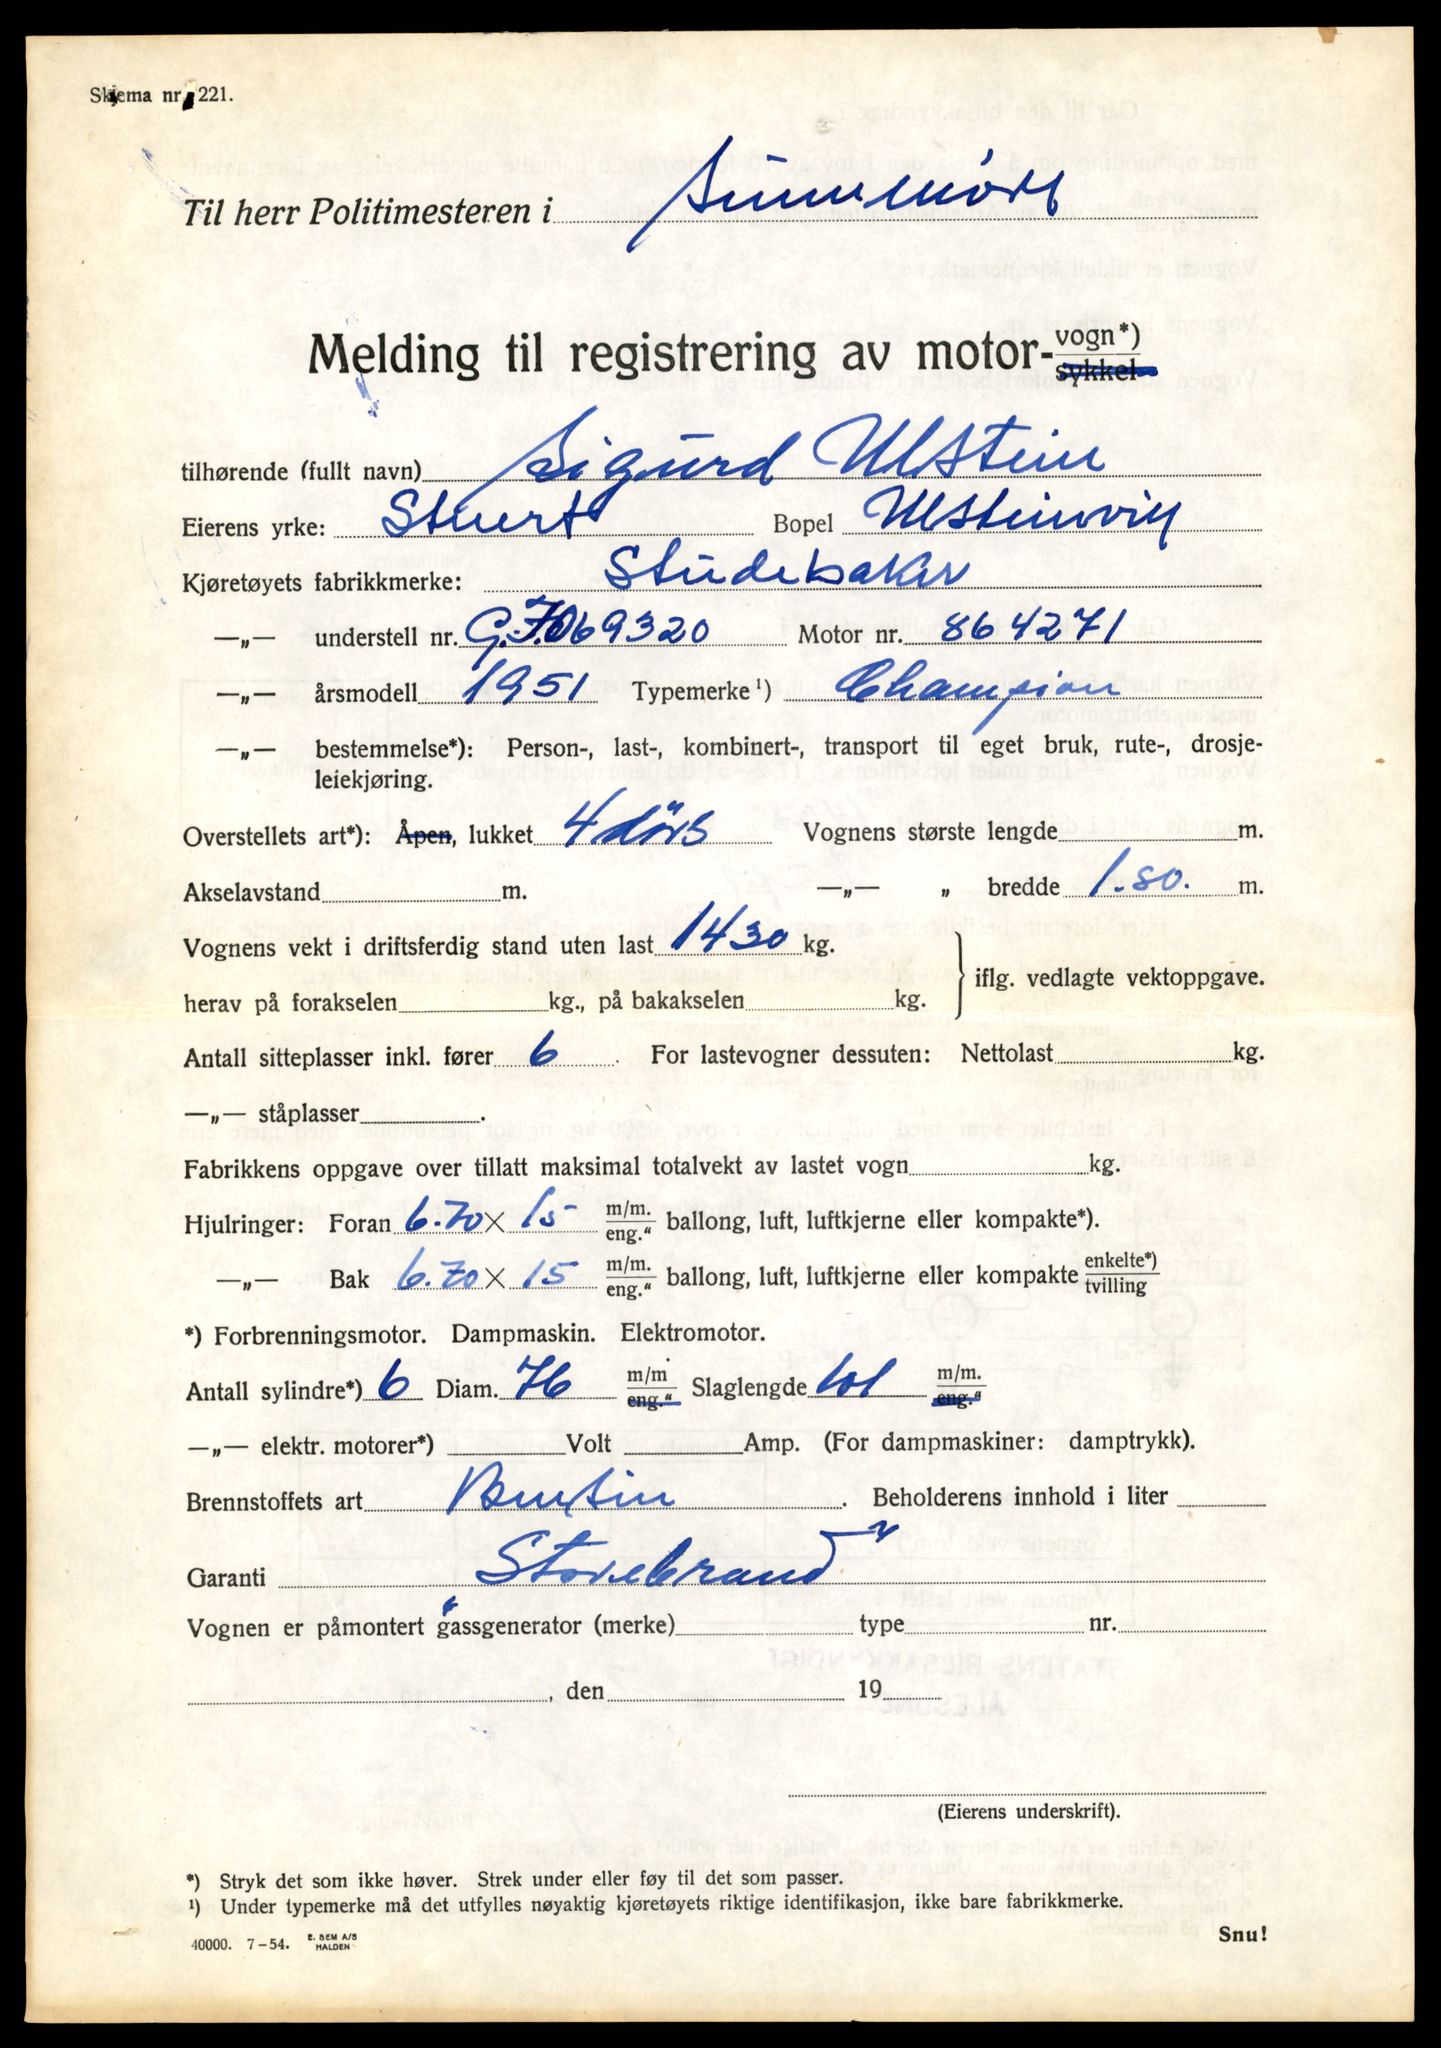 Skjema nr. 221.
Til herr Politimesteren i Sunnmøre
Melding til registrering av motor-vogn*)
sykkel
tilhørende (fullt navn) Sigurd Ulstein
Eierens yrke: Stuert Bopel Ulsteinvik
Kjøretøyets fabrikkmerke: Studebaker
—„— understell nr. G.1069320 Motor nr. 864271
—„— årsmodell 1951 Typemerke ¹) Champion
—„— bestemmelse*): Person-, last-, kombinert-, transport til eget bruk, rute-, drosje-
leiekjøring.
Overstellets art*): Åpen, lukket 4 dørs Vognens største lengde m.
Akselavstand m. —„— „ bredde 1.80. m.
Vognens vekt i driftsferdig stand uten last 1430 kg.
iflg. vedlagte vektoppgave.
herav på forakselen kg., på bakakselen kg.
Antall sitteplasser inkl. fører 6 . For lastevogner dessuten: Nettolast kg.
—„— ståplasser .
Fabrikkens oppgave over tillatt maksimal totalvekt av lastet vogn kg.
Hjulringer: Foran 6.70 × 15 m/m. eng.“ ballong, luft, luftkjerne eller kompakte*).
—„— Bak 6.70 × 15 m/m. eng.“ ballong, luft, luftkjerne eller kompakte enkelte*) tvilling
*) Forbrenningsmotor. Dampmaskin. Elektromotor.
Antall sylindre*) 6 Diam. 76 m/m eng.“ Slaglengde 101 m/m. eng.“
—„— elektr. motorer*) Volt Amp. (For dampmaskiner: damptrykk).
Brennstoffets art Bensin . Beholderens innhold i liter
Garanti „Storebrand“
Vognen er påmontert gassgenerator (merke) type nr.
, den 19
(Eierens underskrift).
*) Stryk det som ikke høver. Strek under eller føy til det som passer.
¹) Under typemerke må det utfylles nøyaktig kjøretøyets riktige identifikasjon, ikke bare fabrikkmerke.
40000. 7-54. E. SEM A/S
HALDEN
Snu!